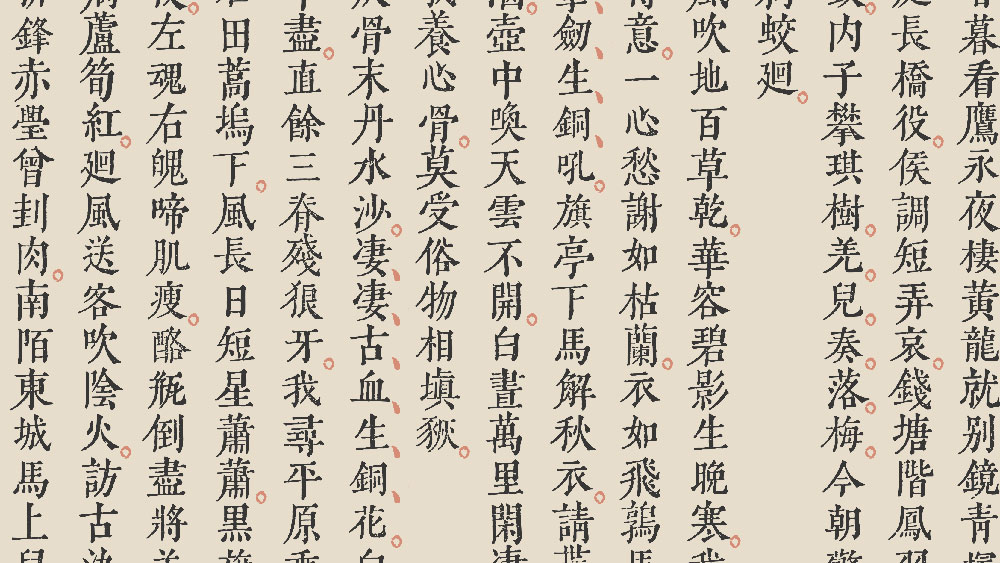 暮看鷹永夜棲黃龍就別鏡青
長橋役。侯調短弄哀。錢塘階鳳羽
内子攀琪樹。羌兒奏落梅。今朝擎
蛟廻。
風吹地百草乾。華容碧影生晚寒。我
意。一心愁謝如枯蘭。衣如飛鶉馬
劒、生、銅、吼。旗亭下馬解秋衣。請貰
壺中喚天雲不開。白晝萬里閑淒
養心骨。莫受俗物相塡豗。
骨末丹水沙。淒、淒、古、血、生、銅、花。白
盡。直餘三脊殘狼牙。我尋平原乘
田蒿塢下。風長日短星蕭蕭。黑旗
左魂右魄啼肌瘦。酪瓶倒盡將羊
蘆筍紅。廻風送客吹陰火。訪古
鋒赤璺曾刲肉。南陌東城馬上兒